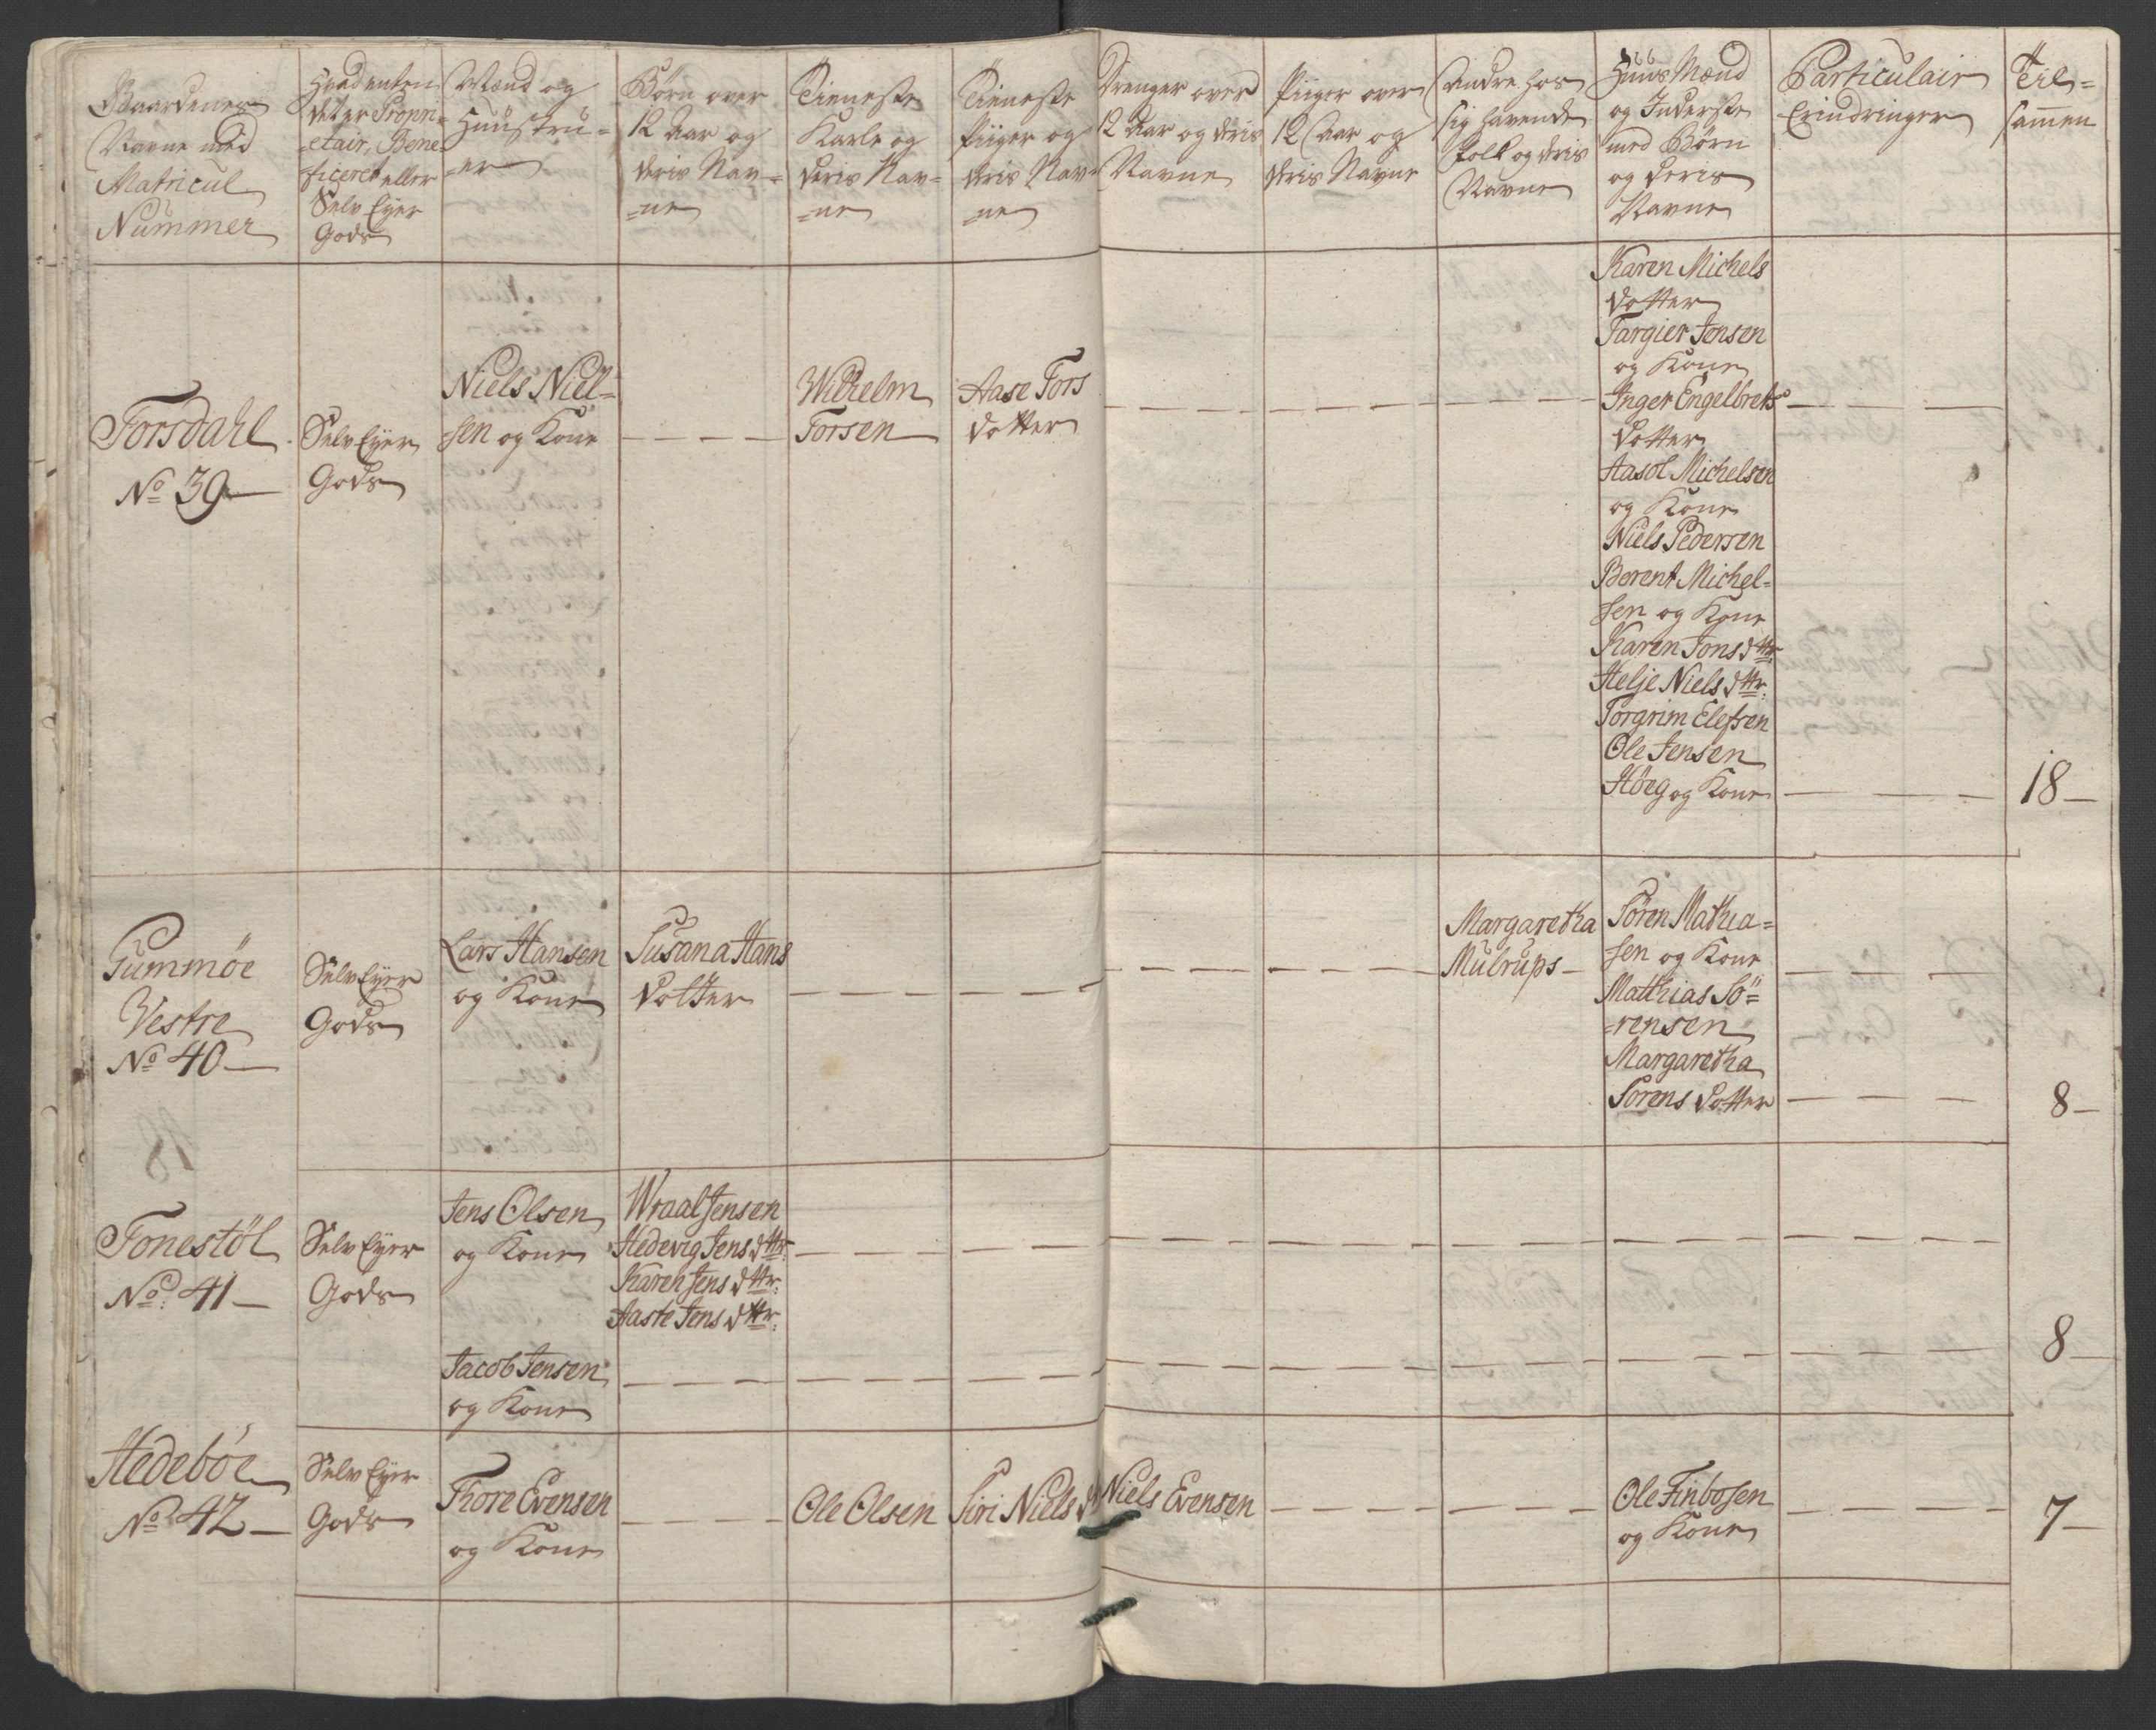 Gaardenes
Navne med
Matricul
Nummer
Hvadenten
det er Propri=
=etair, Bene=
ficeret eller
Selv Eyer
Gods
Mænd og
Huustru=
=er
Börn over
12 Aar og
deris Nav=
=ne
Tieneste
Karle og
deris Nav=
=ne
Tieneste
Piiger og
deris Nav=
=ne
Drenger over
12 Aar og deris
Navne
Piiger over
12 Aar og
deris Navne
Andre hos
sig havende
folk og deris
Navne
Huus Mænd
og Inderste
med Börn
og deris
Navne
Particulair
Erindringer
Til=
sam̄en
Torsdahl
No 39
Selv Eyer
Gods
Niels Niel=
=sen og Kone
Wilhelm
Torsen
Aase Tors
dotter
Karen Michels
dotter
Targier Jensen
og Kone
Inger Engelbrets
dotter
Aasol Michelsen
og Kone
Niels Pedersen
Berent Michel=
sen og Kone
Karen Jons dttr:
Helje Niels dttr:
Torgrim Elefsen
Ole Jensen
Höeg og Kone
18
Gummöe
Vestre
No 40
Selv Eyer
Gods
Lars Hansen
og Kone
Susana Hans
dotter
Margaretha
Mulrups
Sören Mathia=
sen og Kone
Matthias Sö=
=rensen
Margaretha
Sorens dotter
8
Tonestöl
No: 41
Selv Eyer
Gods
Jens Olsen
og Kone
Wraal Jensen
Hedevig Jens dttr:
Karen Jens dttr:
Aaste Jens dttr:
Jacob Jensen
og Kone
8
Hedeböe
No 42
Selv Eyer
Gods
Thore Evensen
og Kone
Ole Olsen
Siri Niels d
Niels Evensen
Ole Finbosen
og Kone
7